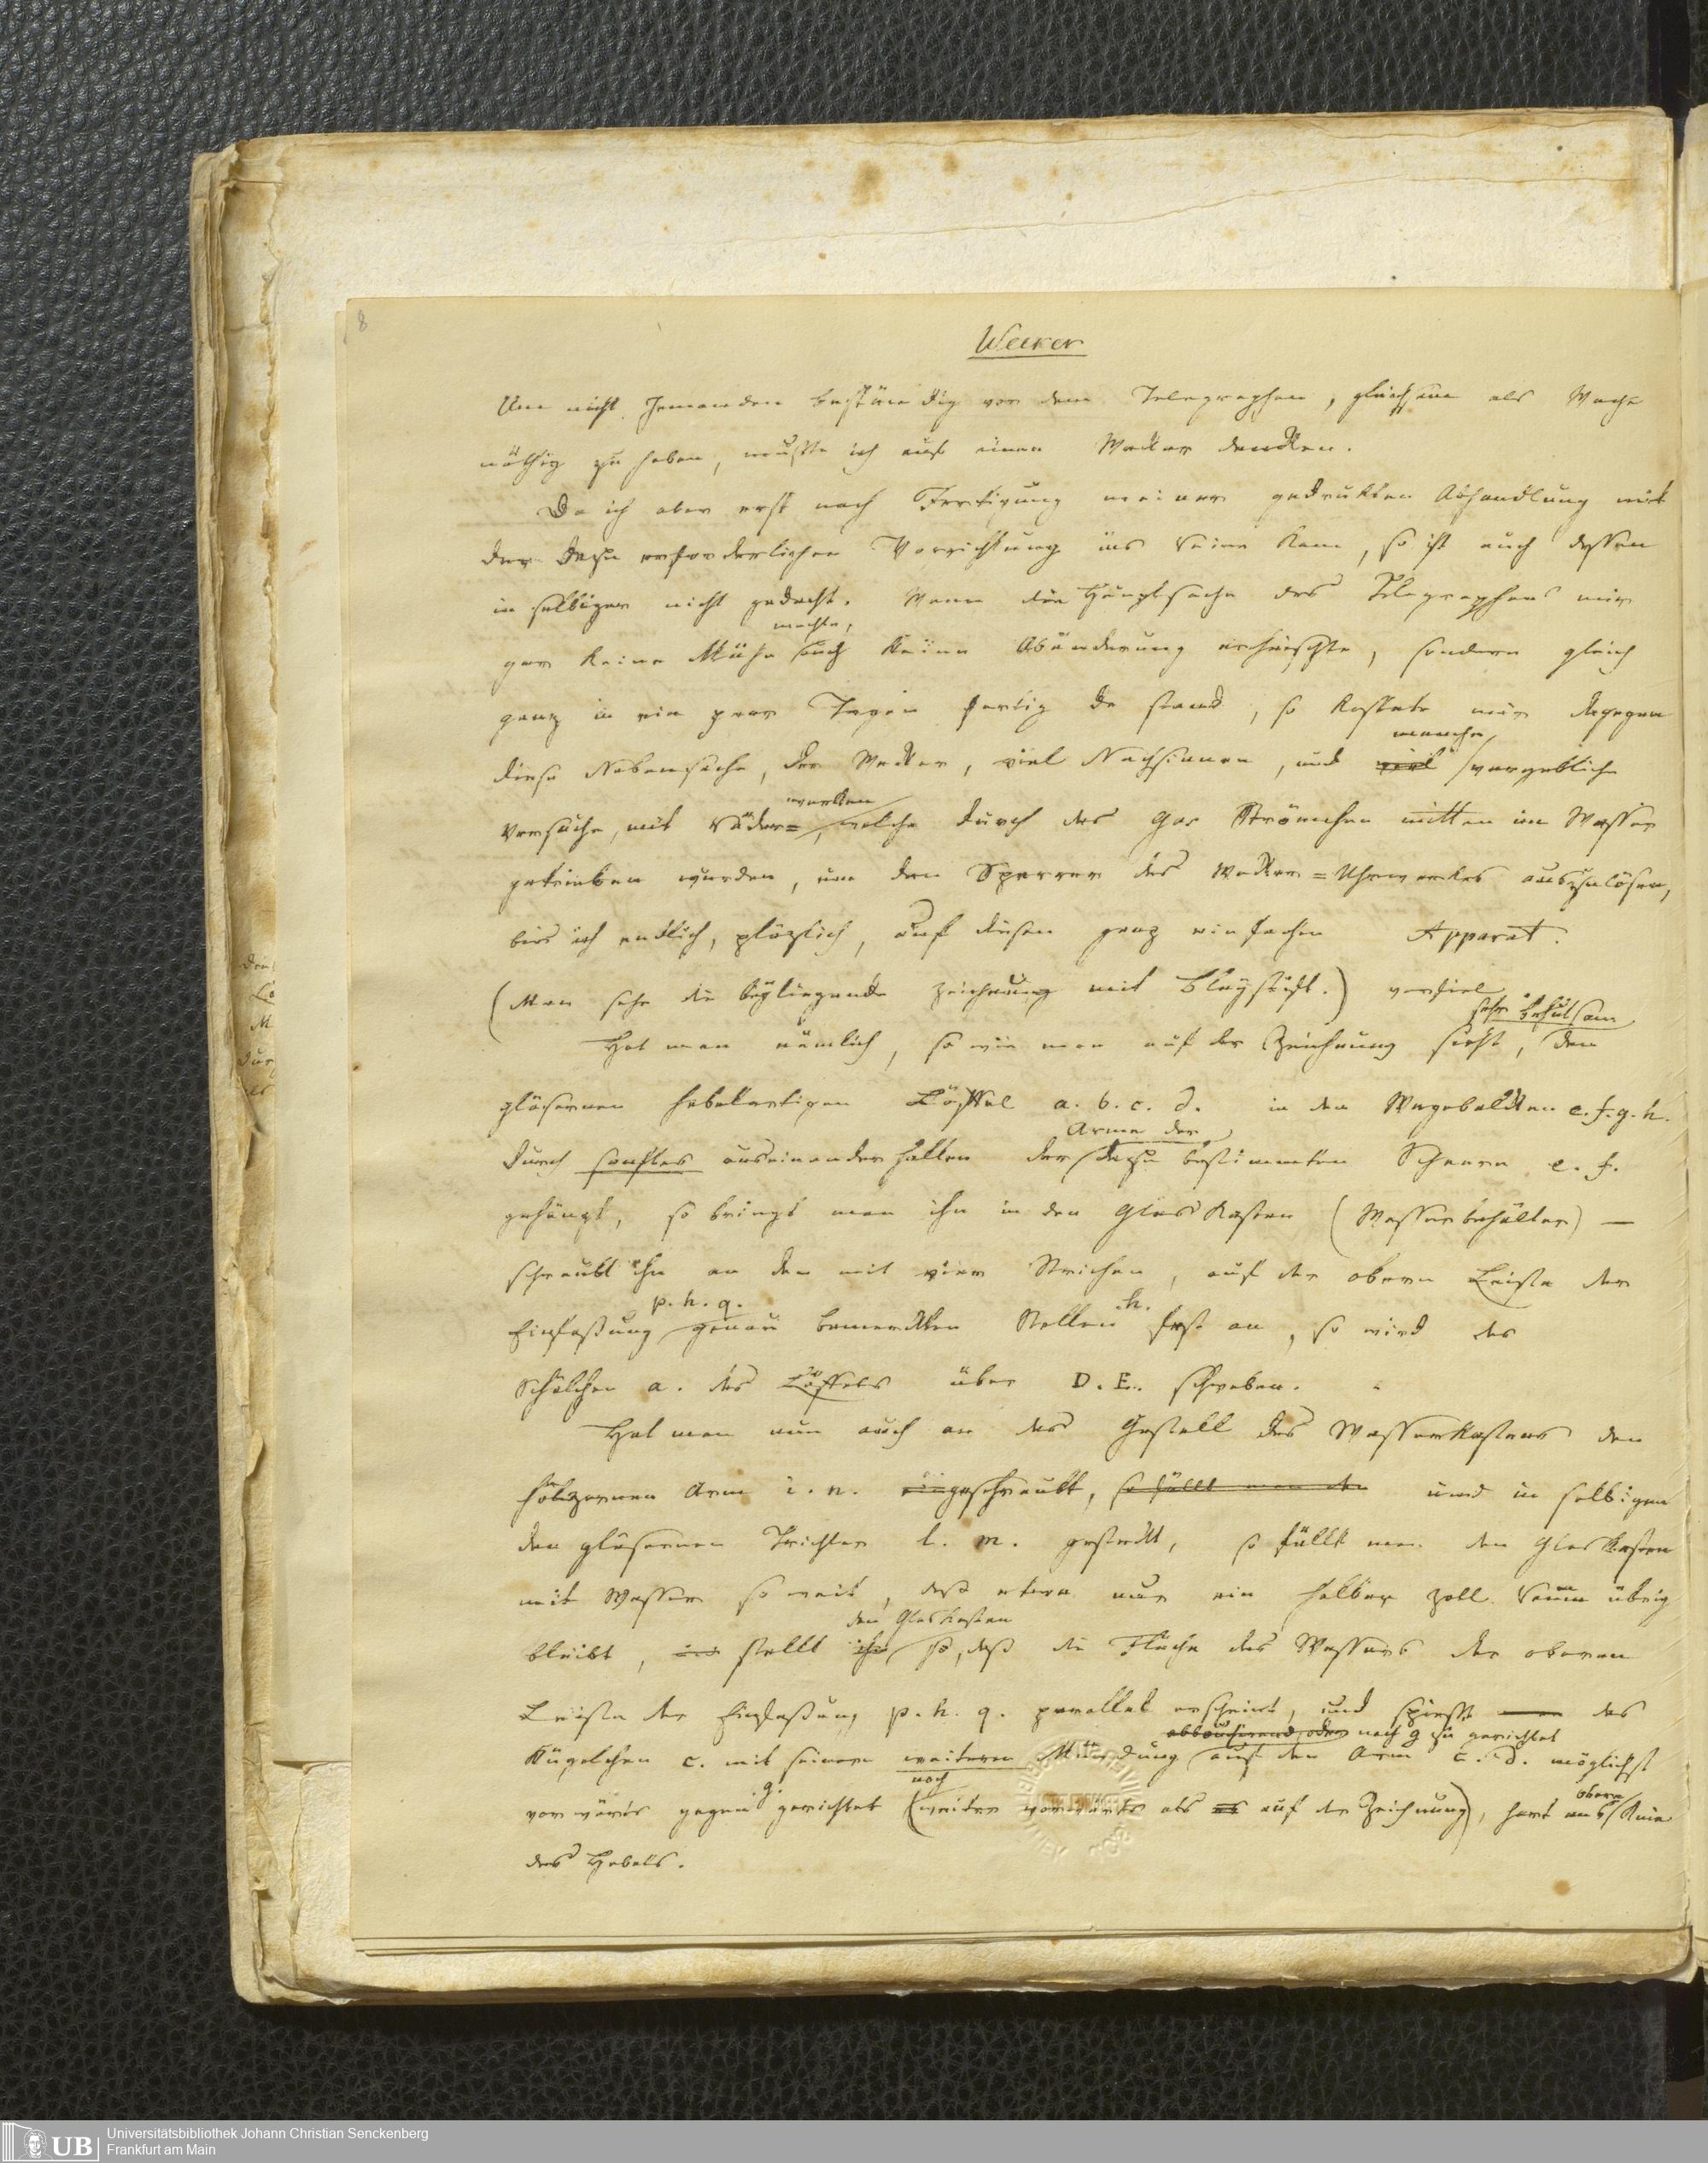 8
Wecker
Um nicht Jemanden beständig vor dem Telegraphen, gleichsam als Wache
nöthig zu haben, mußte ich auf einen Wecker denken.
Da ich aber erst nach Fertigung meiner gedrukten Abhandlung mit
der dazu erforderlichen Vorrichtung ins Reine kam, so ist auch dessen
in selbiger nicht gedacht. Wenn die Hauptsache des Telegraphens mir
machte,
gar keine Mühe auch keine Abänderung erheischte, sondern gleich
ganz in ein paar Tagen fertig da stand, so kostete mir dagegen
manche
diese Nebensache, der Wecker, viel Nachsinnen, und viel vergebliche
werken
Versuche, mit Räder=, welche durch das Gas Strömchen mitten im Wasser
getrieben wurden, um den Sperrer des Wecker=Uhrwerkes auszulösen,
bis ich endlich, plözlich, auf diesen ganz einfachen Apparat
(Man sehe die beÿliegende Zeichnung mit Bleÿstift.) verfiel
sehr behutsam
Hat man nämlich, so wie man auf der Zeichnung sieht, den
gläsernen hebelartigen Löffel a. b. c. d. in den Wagebalken e. f. g. h.
Arme der
durch sanftes auseinander halten der dazu bestimmten Scheere e. f.
gehängt, so bringt man ihn in den Glas Kasten (Wasserbehälter) —
schraubt ihn an den mit vier Strichen, auf der obern Leiste der
p. h. q. h.
Einfaßung genau bemerkten Stellen fest an, so wird das
Schälchen a. des Löffels über D. E. schweben.
Hat man nun auch an das Gestell des Wasserkastens den
hölzernen Arm i. n. eingeschraubt, so füllt man den und in selbigen
den gläsernen Trichter l. m. gesteckt, so füllt man den Glas Kasten
mit Wasser so weit, daß etwa nur ein halber Zoll Raum übrig
den Glas Kasten
bleibt, und stellt ihn so, daß die Fläche des Wassers der oberen
Leiste der Einfaßung p. h. q. parallel erscheint, und spießt das
oder nach g zu gerichtet
Kügelchen c. mit seiner weitern Mündung auf den Arm c. d. möglichst
noch g. obere
vorwärts gegen gerichtet (weiter vorwärts als es auf der Zeichnung), hart ans Knie
des Hebels.
Universitätsbibliothek Johann Christian Senckenberg
Frankfurt am Main
UB